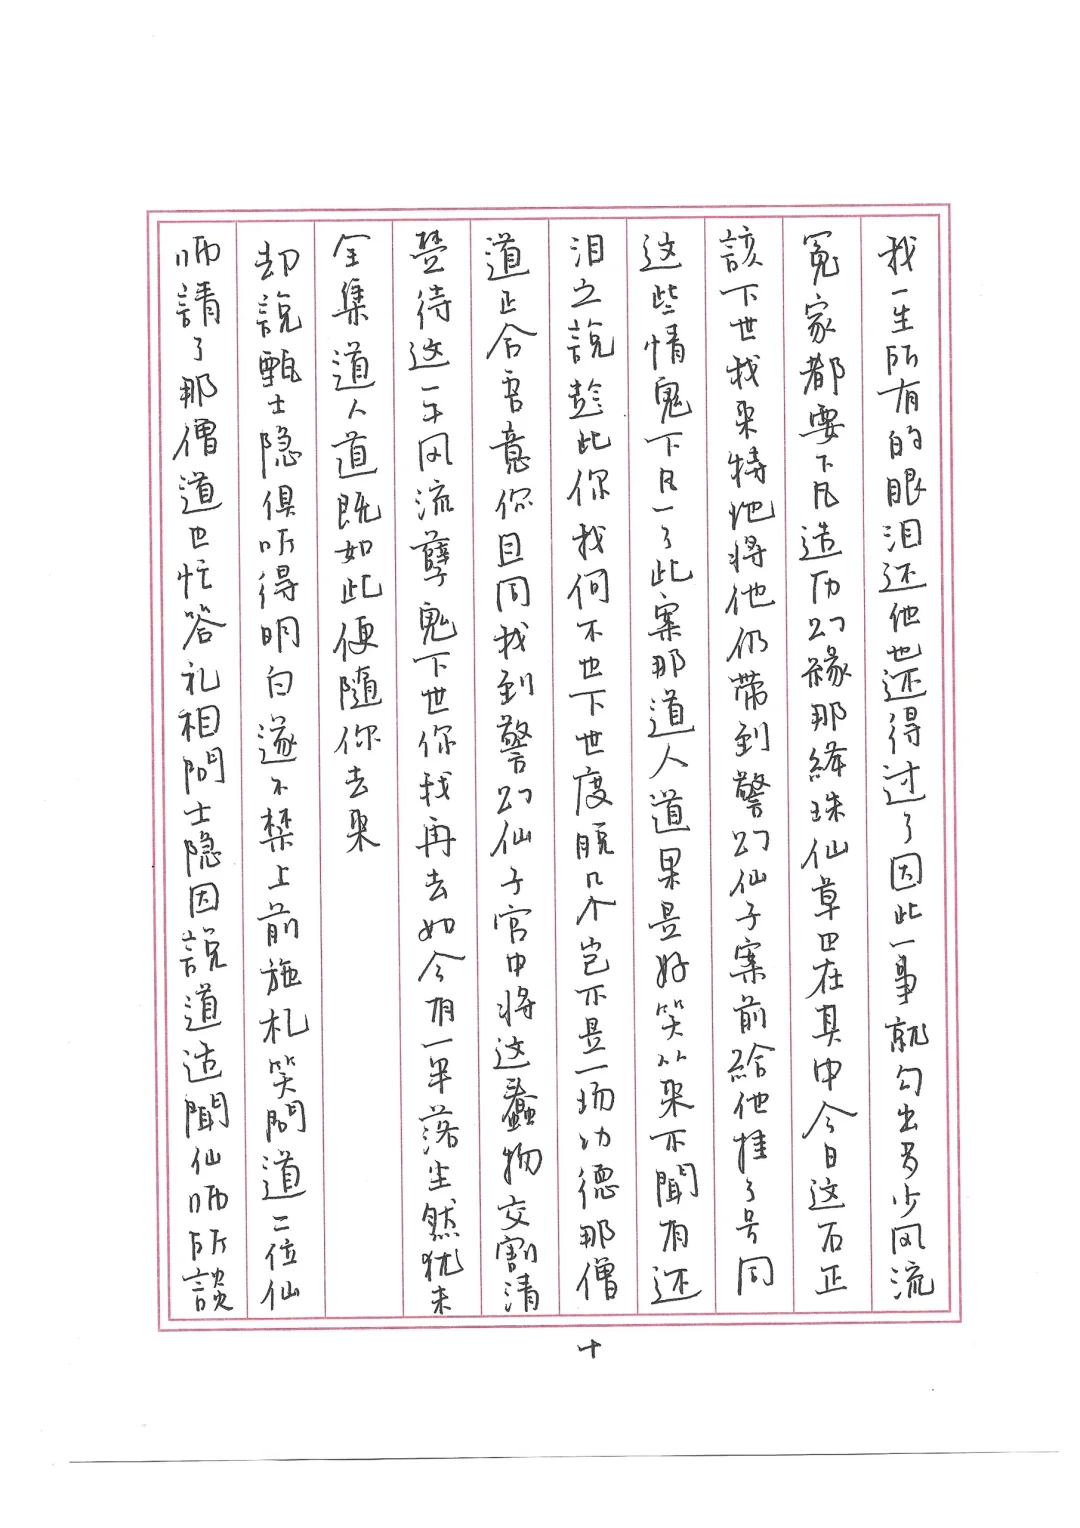 我一生所有的眼泪还他也还得过了因此一事就勾出多少风流
冤家都要下凡造历幻缘那绛珠仙草也在其中今日这石正
該下世我来特地将他仍带到警幻仙子案前給他挂了号同
这些情鬼下凡一了此案那道人道果是好笑从来不聞有还
泪之說趁此你我何不也下世度脱几个岂不是一场功德那僧
道正合吾意你且同我到警幻仙子宫中将这蠢物交割清
楚待这一干风流孽鬼下世你我再去如今有一半落尘然犹未
全集道人道既如此便隨你去来
却說甄士隐俱听得明白遂不禁上前施礼笑問道二位仙
师請了那僧道也忙答礼相問士隐因說道适聞仙师所談
十